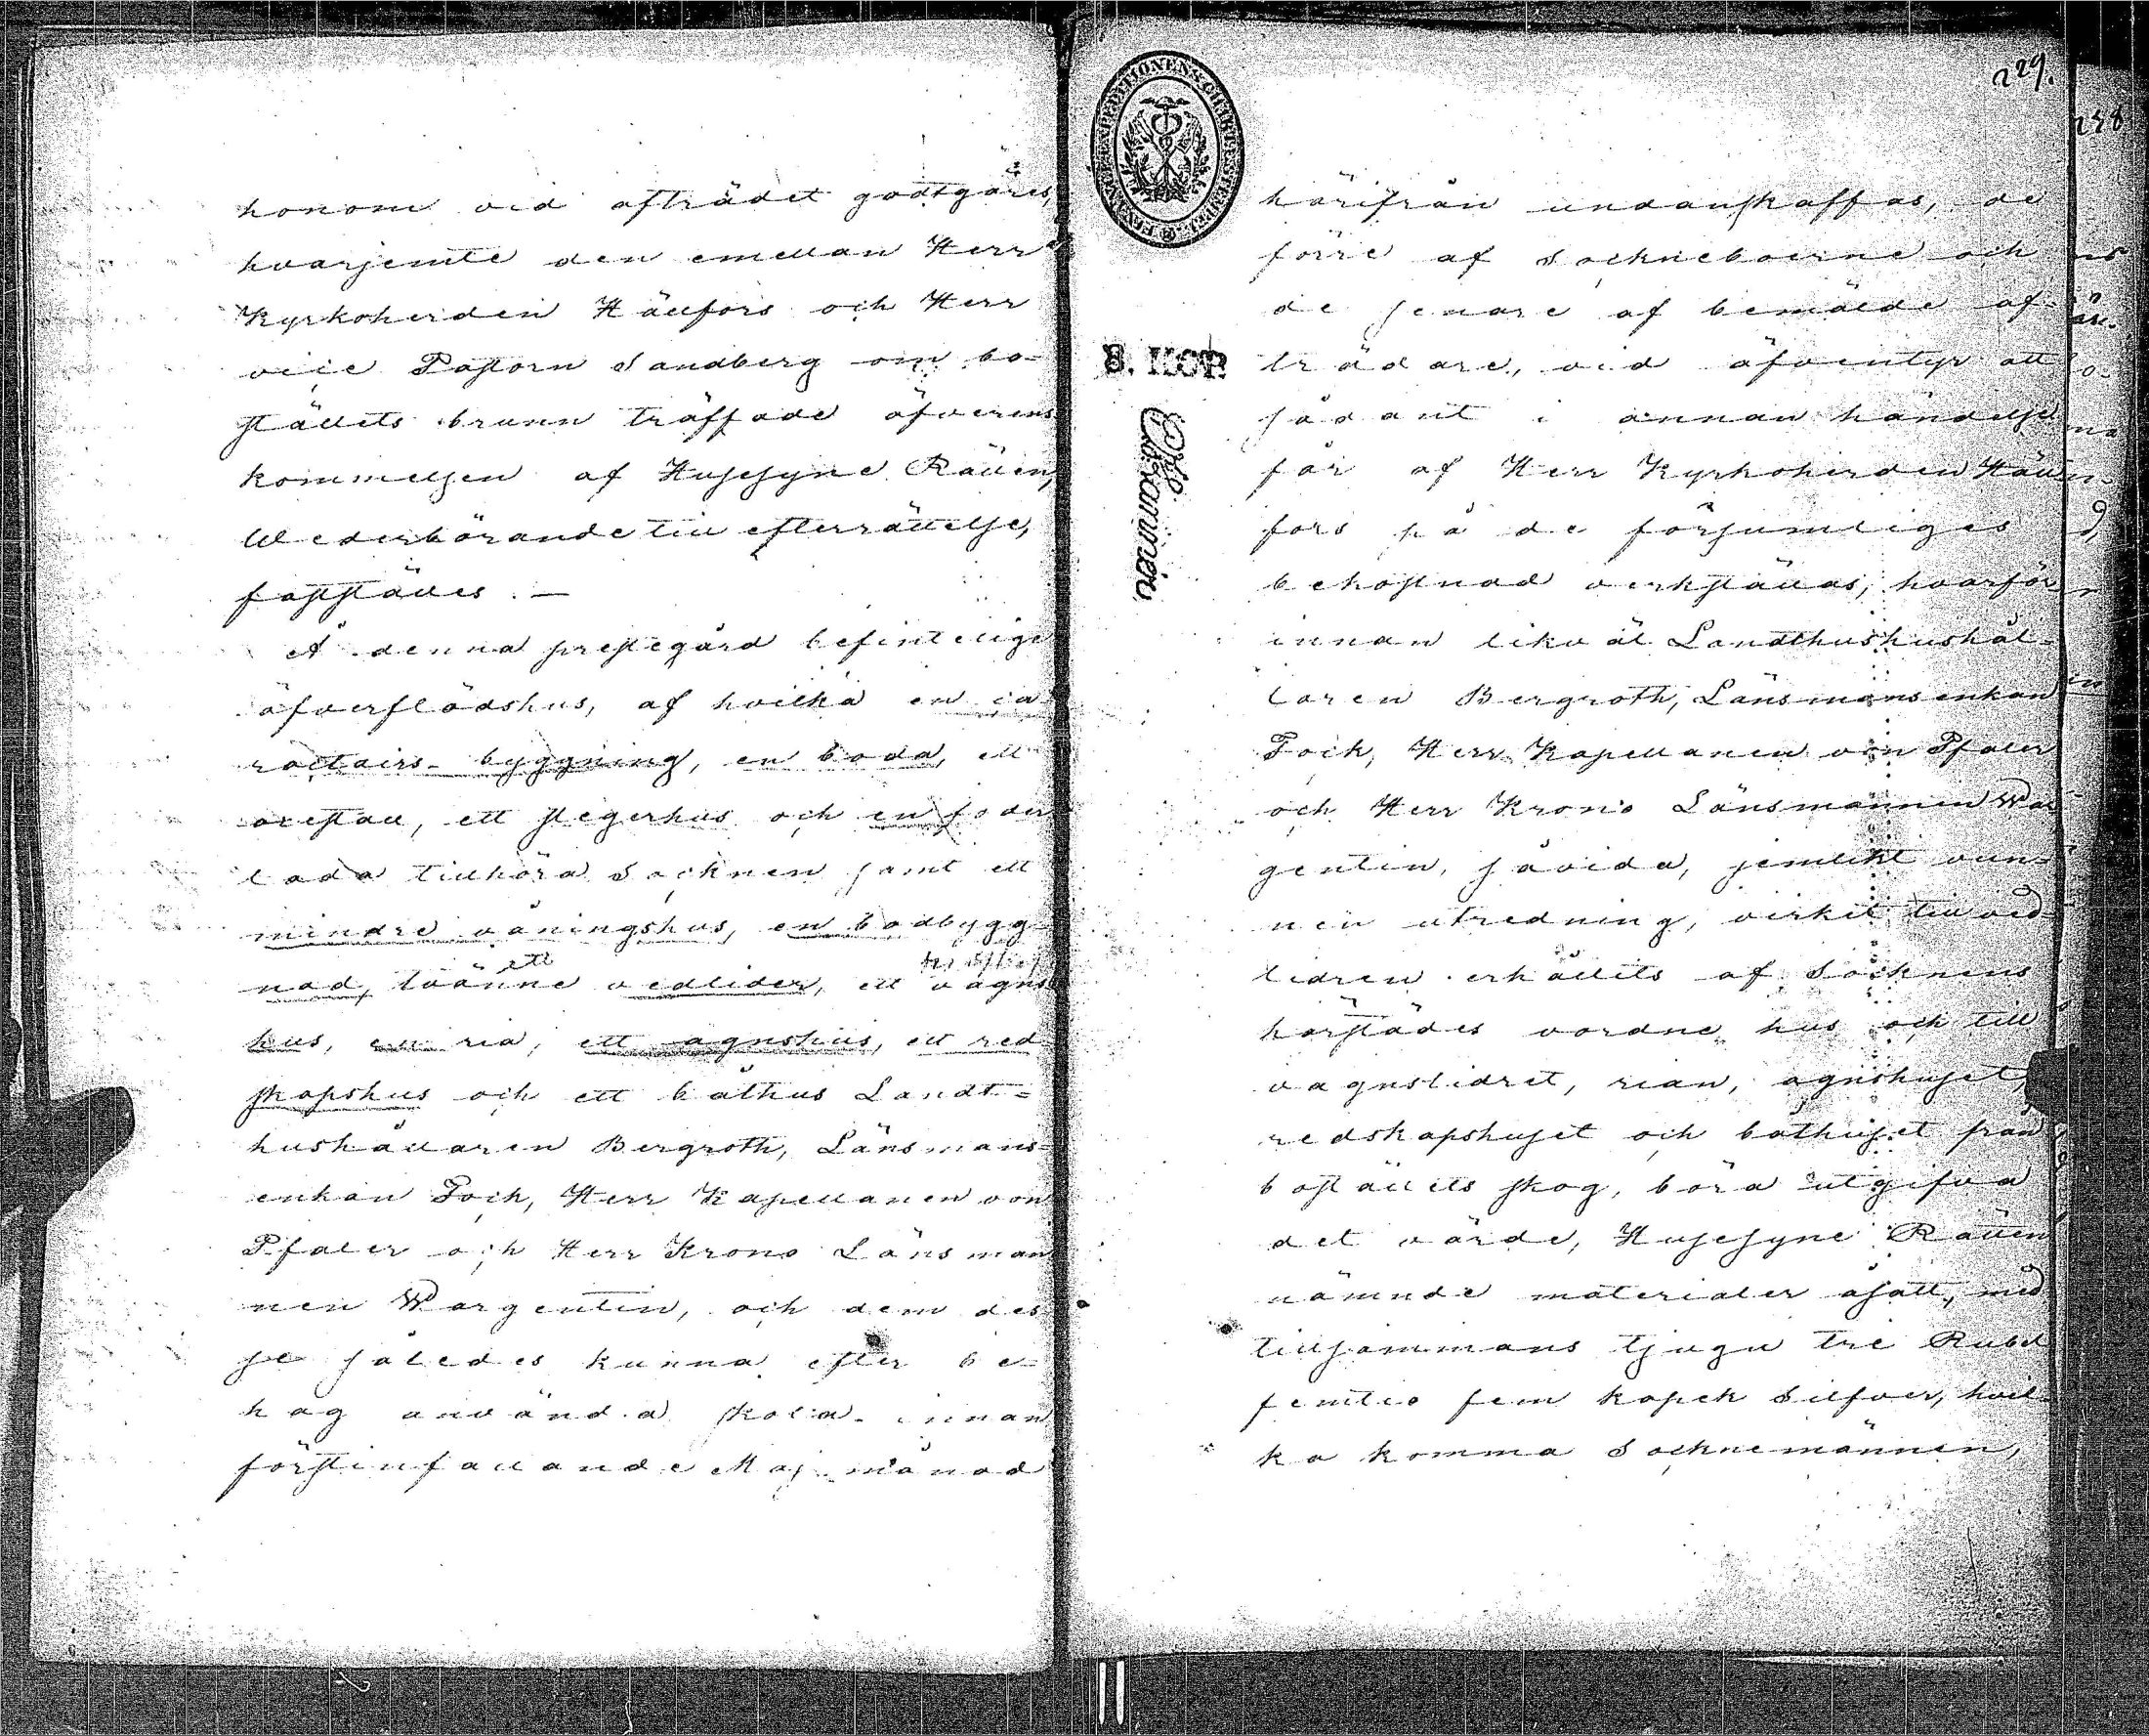 honom vid afträdet godtgöres,
hvarjemte den emellan Herr
Kyrkoherden Hällfors och Herr
vice Pastorn Sandberg om bo-
ställets brunn träffade öfverens
kommelsen af Husesyne Rätten,
Wederbörande till efterrättelse,
fastställes. —
Å denna prestegård befintelige
öfverflödshus, af hvilka en ca-
ractairs-byggning, en boda, ett
ett stegerhus och en foder
lada tillhöra Socknen samt ett
mindre våningshus, en bodbygg-
nad, tvänne vedlider, ett vagns
ett
hus, en ria, ett agnshus, ett red
skapshus och ett båthus Landt-
hushållaren Bergroth, Länsmans-
enkan Fock, Herr Kapellanen von
Pfaler och Herr Krono Länsman
nen Wargentin, och dem des
se således kunna efter be-
hag använda skola innan
förstinfallande Maj månad
229.
FINANCE EXPEDITIONENS CHARTÆ STEMPEL
8. KOP.
härifrån undanskaffas, de
förre af Sockneboerne och
de senare af bemälde af-
trädare, vid äfventyr att
sådant i annan händelse
får af Herr Kyrkoherden Häll
fors på de försumliges
bekostnad verkställas, hvarför
innan likväl Landthushushål-
laren Bergroth, Länsmansenkan
Fock, Herr Kapellanen von Pfaler
och Herr Krono Länsmannen War
gentin, såvida, jemlikt vun-
nen utredning, virket till ved
lidren erhållits af Socknens
härstädes vordne hus och till
vagnslidret, rian, agnshuset,
redskapshuset och båthuset från
boställets skog, böra utgifva
det värde, Husesyne Rätten
nämnde materialer åsatt, med
tillsammans tjugu tre Rubel
femtio fem kopek Silfver, hvil-
ka komma Socknemännen,
238